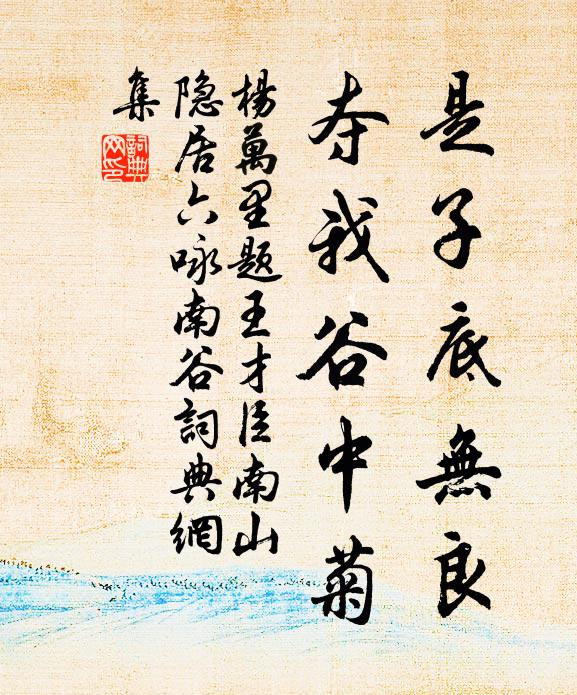 是子底無良
夺我谷中菊
楊萬里题王才臣南山
隐居六咏南谷詞典網
集
詞典
网印